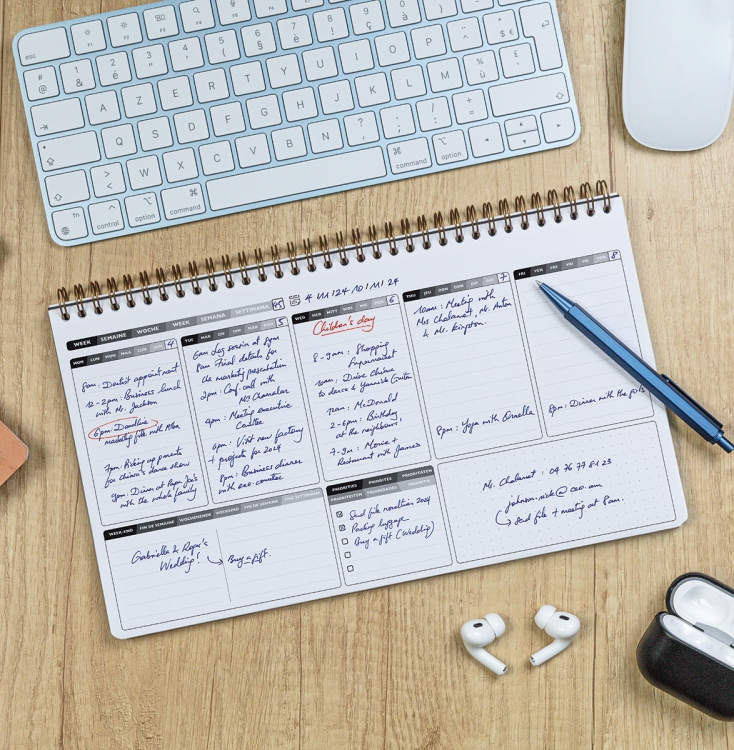 esc
F1
F2
F3
F4
F5
F6
# @ 1 & 2 é 3 " 4 ' 5 ( 6 § 7 è 8 ! 9 ç 0 à ) °
A Z E R T Y U I O P
Q S D F G H J K L M % ù £
> < W X C V B N ? , . ; / : + =
fn control option command command option
WEEK SEMAINE WOCHE WEEK SEMANA SETTIMANA 45
MON LUN MON 4
9am: Dentist appointment
12-2pm: Business lunch
with Mr. Jackson
6pm: Deadline
marketing file with
7pm: Picking up parents
for dance show
9pm: Dinner at Papa Joe's
with the whole family
TUE MAR DIE 5
8am Final details for
the marketing presentation
2pm: Conf. call with
4pm: Meeting executive
6pm: Visit new factory
+ projects for 2024
8pm: Business dinner
with exe. comittee
WED MER MITT 6
Children's day
8-9am: Shopping
Supermarket
10am: Drive
to dance & Yannick Guitar
12am: McDonald
2-6pm: Birthday
at the neighbours'
7-9pm: Movie +
Restaurant with James
THU JEU DON 7
10am: Meeting with
Mrs Chalamat, Mr. Anton
& Mr. Kingston.
8pm: Yoga with Ornella
FRI VEN FRE 8
8pm: Dinner with the girls
WEEK-END FIN DE SEMAINE WOCHENENDE WEEKEND FIN DE SEMANA FINE SETTIMANA
Gabriella & Roger's
Wedding!
Buy a gift.
PRIORITIES PRIORITÉS PRIORITÄTEN
PRIORITEITEN PRIORIDADES PRIORITÀ
Send file novelties 2024
Packup luggage
Buy a gift (Wedding)
Mr. Chalamat: 04 76 77 81 23
Send file + meeting at 8am.